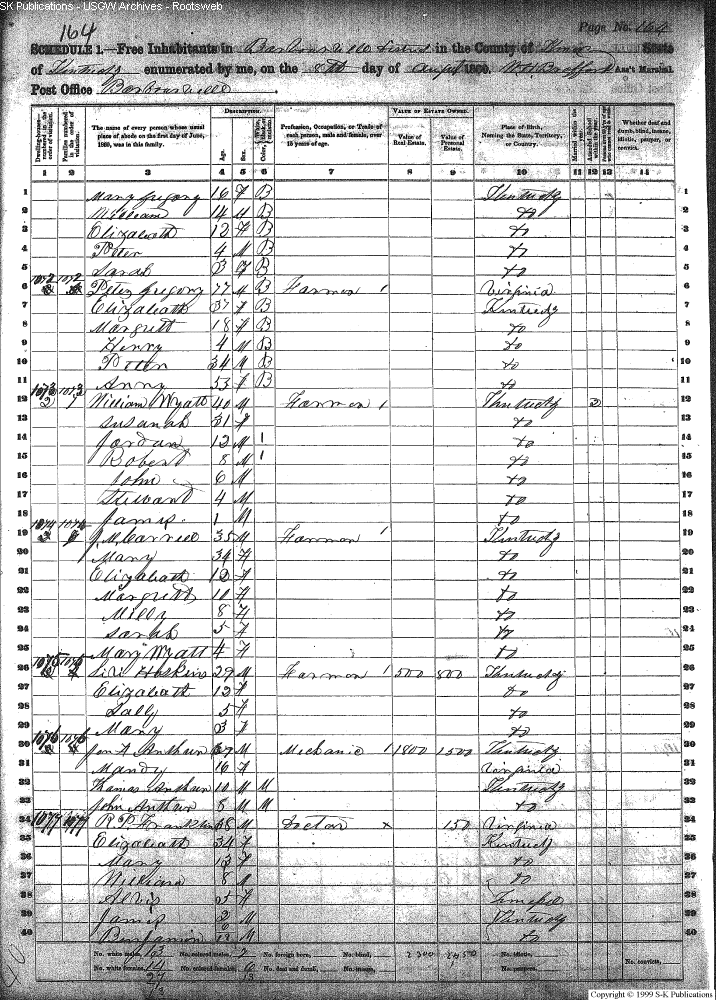 SK Publications - USGW Archives - Rootsweb
164
Page No. 164
SCHEDULE 1.—Free Inhabitants in Barboursville District in the County of Knox State
of Kentucky enumerated by me, on the 8th day of August 1860. Ass't Marshal.
Post Office Barboursville
DESCRIPTION. VALUE OF ESTATE OWNED.
Dwelling-houses—numbered in the order of visitation. Families numbered in the order of visitation. The name of every person whose usual place of abode on the first day of June, 1860, was in this family. Age. Sex. Profession, Occupation, or Trade of each person, male and female, over 15 years of age. Value of Real Estate. Value of Personal Estate. Place of Birth, Naming the State, Territory, or Country. Married within the year. Attended School within the year. Whether deaf and dumb, blind, insane, idiotic, pauper, or convict.
1 2 3 4 5 6 7 8 9 10 11 12 13 14
1 Mary Gregory 16 F B Kentucky 1
2 William 14 M B do 2
3 Elizabeath 12 F B do 3
4 Peter 4 M B do 4
5 Sarah 3 F B do 5
6 1072 1072 Peter Gregory 77 M B Farmer 1 Virginia 6
7 Elizabeath 37 F B Kentucky 7
8 Margrett 18 F B do 8
9 Henry 4 M B do 9
10 Peter 34 M B do 10
11 Anny 53 F B do 11
12 1073 1073 William Wyatt 40 M Farmer 1 Kentucky 2 12
13 Susanah 31 F do 13
14 Jordan 12 M 1 do 14
15 Robert 8 M 1 do 15
16 John 6 M do 16
17 Stewart 4 M do 17
18 James 1 M do 18
19 1074 1074 J. M. 35 M Farmer 1 Kentucky 19
20 Mary 34 F do 20
21 Elizabeath 12 F do 21
22 Margrett 10 F do 22
23 Milly 8 F do 23
24 Sarah 5 F do 24
25 Mary Wyatt 4 F do 25
26 1075 1075 Hoskins 29 M Farmer 1 500 800 Kentucky 26
27 Elizabeath 12 F do 27
28 Sally 5 F do 28
29 Mary 3 F do 29
30 1076 1076 M Mechanic 1 1800 1500 Kentucky 30
31 Mandy 16 F Virginia 31
32 Thomas 10 M M Kentucky 32
33 John Arthur 8 M M do 33
34 1077 1077 R. P. Franklin 38 M Doctor x 150 Virginia 34
35 Elizabeath 34 F Kentucky 35
36 Mary 13 F do 36
37 William 8 M do 37
38 5 F 38
39 James 2 M Kentucky 39
40 Benjamin M do 40
No. white males, No. colored males, 7 No. foreign born, No. blind, 2300 2450 No. idiotic, No. convicts,
No. white females, 14 No. colored females, 6 No. deaf and dumb, No. insane, No. paupers,
Copyright © 1999 S-K Publications